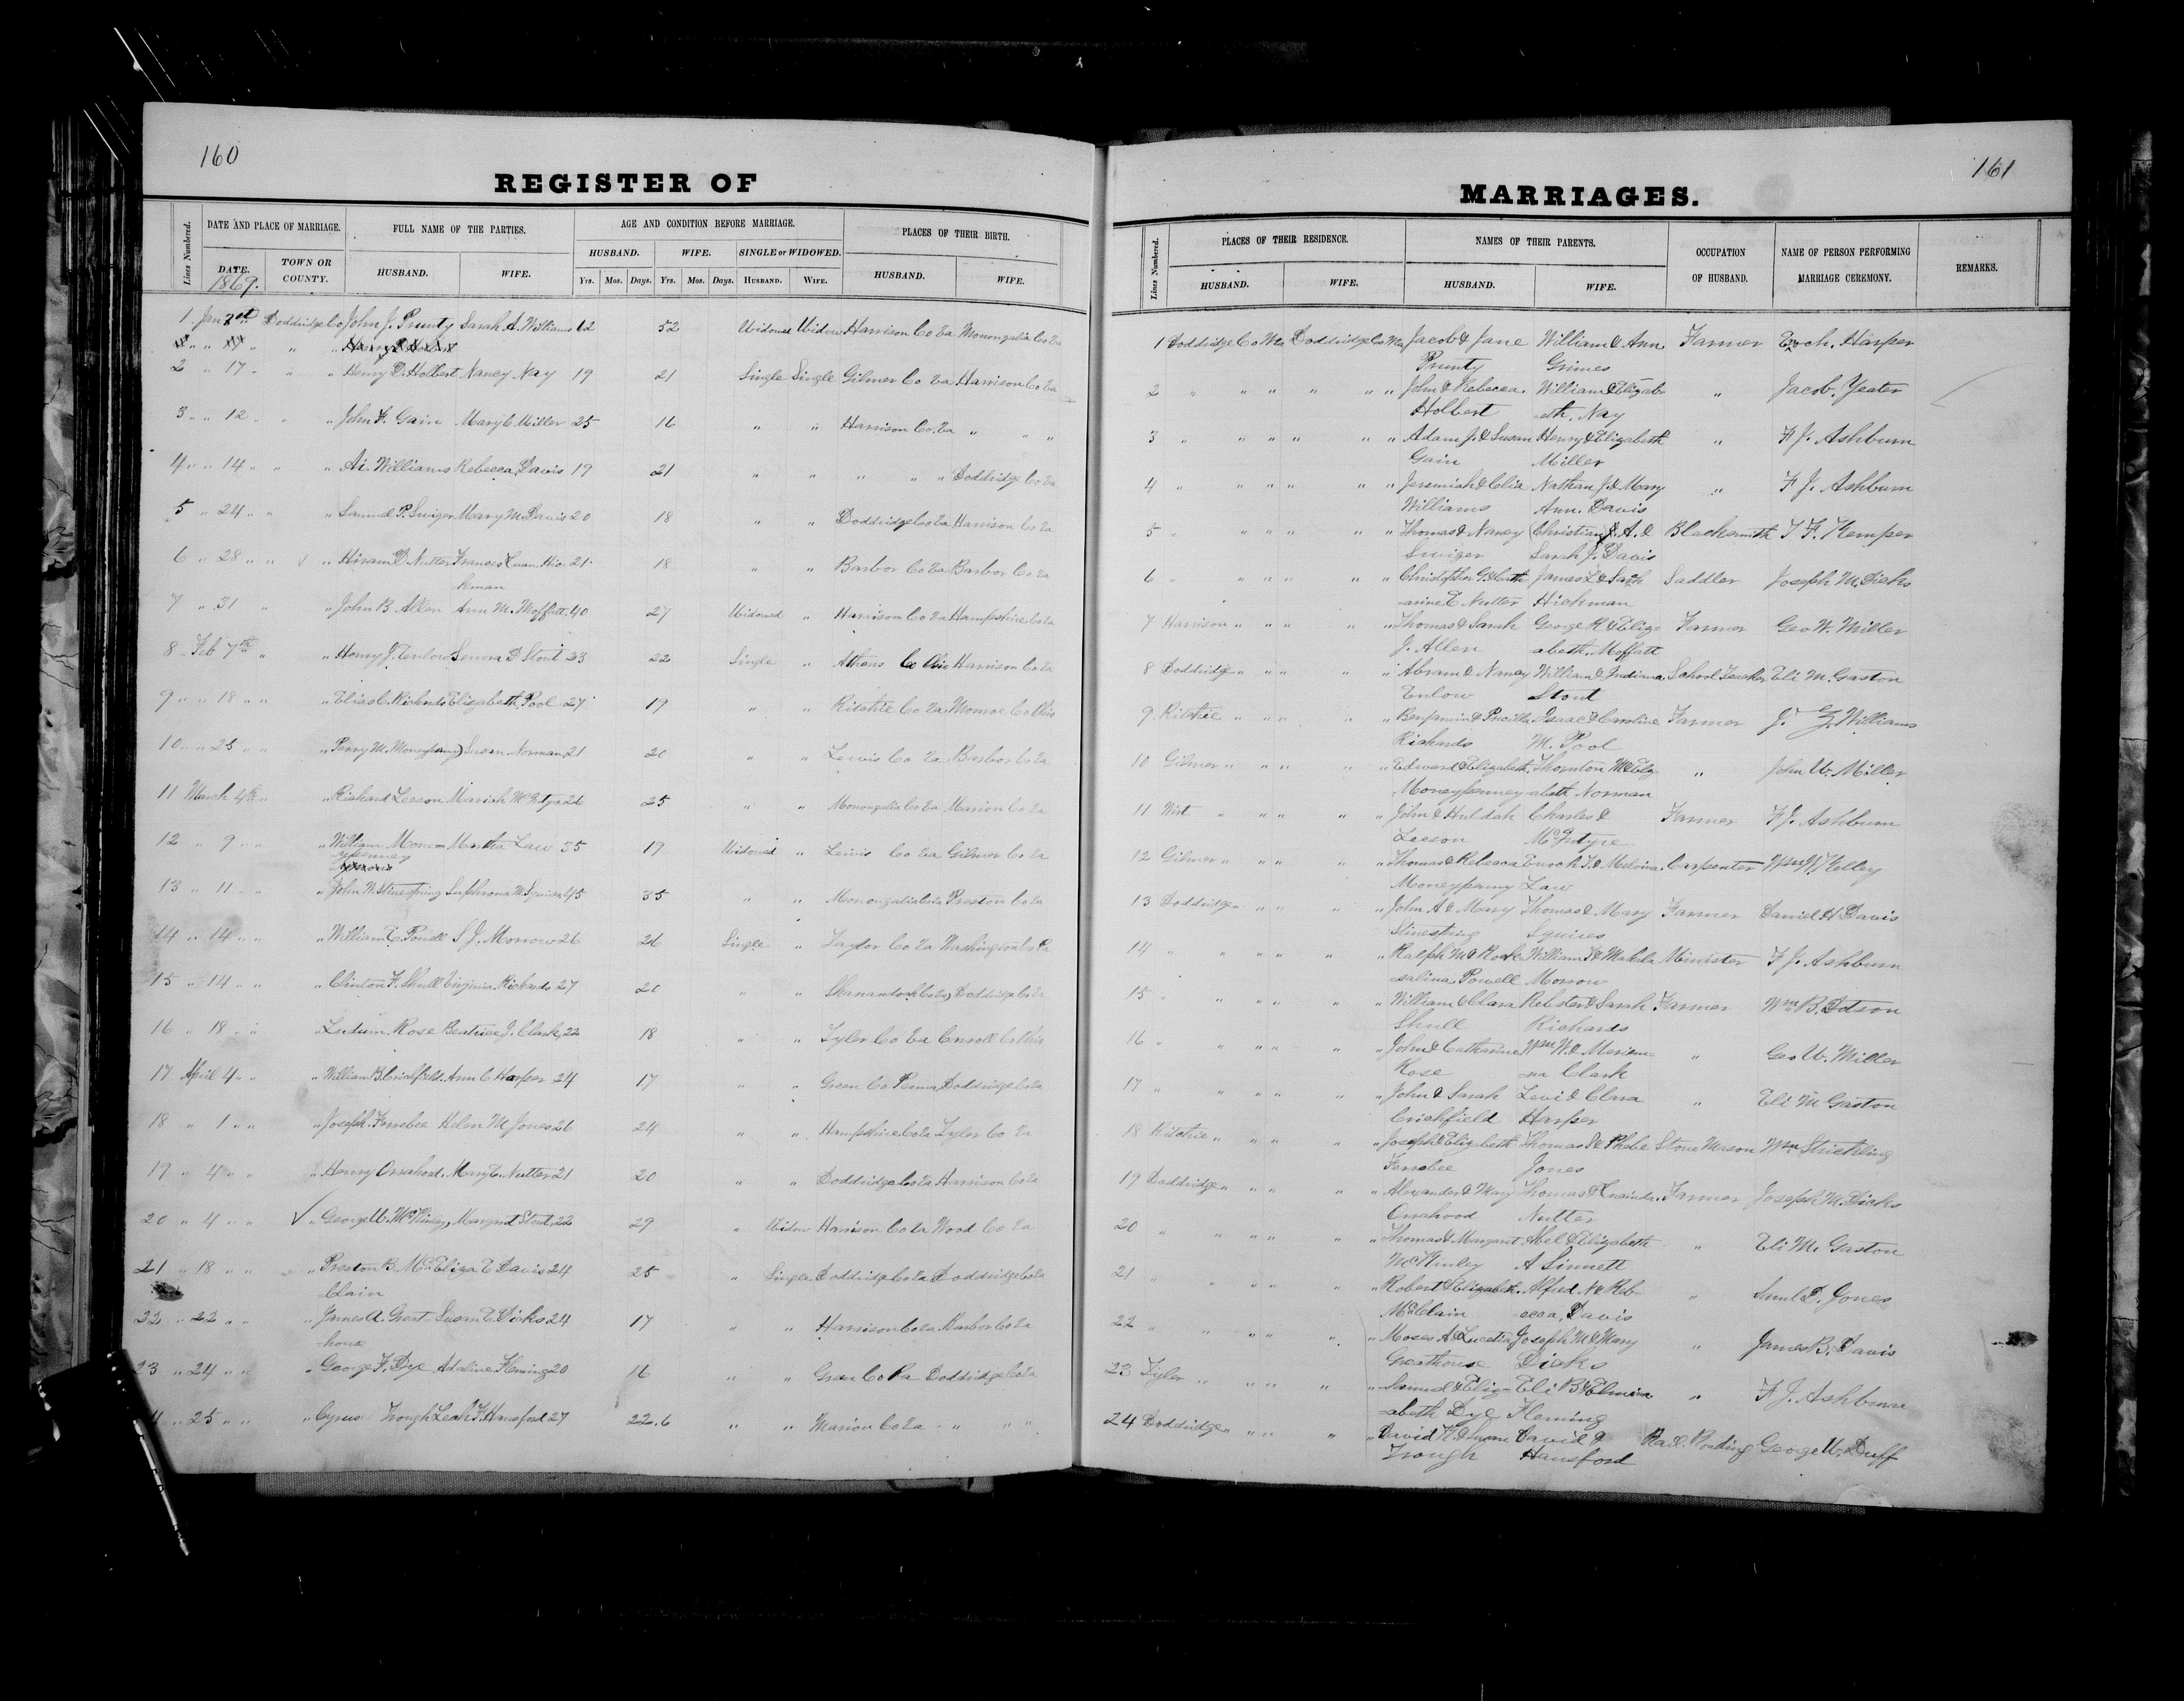 160
REGISTER OF
Lines Numbered.
DATE AND PLACE OF MARRIAGE.
FULL NAME OF THE PARTIES.
AGE AND CONDITION BEFORE MARRIAGE.
PLACES OF THEIR BIRTH.
HUSBAND. WIFE. SINGLE or WIDOWED.
DATE. TOWN OR COUNTY. HUSBAND. WIFE. Yrs. Mos. Days. Yrs. Mos. Days. HUSBAND. WIFE. HUSBAND. WIFE.
1869.
1 Jan Doddridge Co John J. Prunty Sarah A. Williams 52 Widowed Widow Harrison Co Va Monongalia Co Va
2 " 17 " " " Henry D. Holbert Nancy Nay 19 21 Single Single Gilmer Co Va Harrison Co Va
3 " " 12 " " " John F. Gain Mary C Miller 25 16 " " Harrison Co. Va " " "
4 " " 14 " " " Ai. Williams Rebecca Davis 19 21 " " " " " Doddridge Co Va
5 " 24 " " " Samuel P. Swiger Mary M. Davis 20 18 " " Doddridge Co Va Harrison Co Va
6 " 28 " " " Hiram D. Nutter Frances Luan Hic 21 18 " " Barbor Co Va Barbor Co Va
kman
7 " 31 " " John B Allen Ann M. Moffatt 40 27 Widowed " Harrison Co Va Hampshire Co Va
8 " Feb 7th " " Henry J. Lenora D Stout 23 22 Single " Athens Co Ohio Harrison Co Va
9 " " 18 " " " Elias C. Richards Elizabeth Pool 27 19 " " Ritchie Co Va Monroe Co Ohio
10 " " 25 " " " Perry M. Moneypenny Susan Norman 21 20 " " Lewis Co Va Barbor Co Va
11 March 4th " " Richard Leeson Mariah McIntyre 26 25 " " Monongalia Co Va Marion Co Va
12 " 9 " " " William Mone= Martha Law 35 19 Widowed " Lewis Co Va Gilmer Co Va
ypenney
13 " 11 " " " John W. Stinespring M. Squires 45 35 " " Monongalia Co Va Preston Co Va
14 " 14 " " " William E. Powell S. J. Morrow 26 26 Single " Taylor Co Va Washington Co Pa
15 " 14 " " " Clinton F. Shull Virginia Richards 27 20 " " Shanandoah Co Va Doddridge Co Va
16 " 18 " " " Ludum Rose Beatrice J. Clark 22 18 " " Tyler Co Va Carroll Co Ohio
17 April 4 " " " William B. Crichfield Ann C Harper 24 17 " " Green Co Penna Doddridge Co Va
18 " 1 " " " Joseph Ferrebee Helen M Jones 26 24 " " Hampshire Co Va Tyler Co Va
19 " 4 " " " Henry Orrahood Mary E. Nutter 21 20 " " Doddridge Co Va Harrison Co Va
20 " 4 " " " George W. McKinley Margaret Stout 22 29 " Widow Harrison Co Va Wood Co Va
21 " 18 " " " Preston B. Mc Eliza E Davis 24 25 " Single Doddridge Co Va Doddridge Co Va
Clain
22 " 22 " " " James A. Great Susan E. Dicks 24 17 " " Harrison Co Va Barbor Co Va
house
23 " 24 " " " George F. Dye Adaline Fleming 20 16 " " Green Co Pa Doddridge Co Va
" 25 " " " Cyrus Trough Leah F. Hansford 27 22.6 " " Marion Co Va " " "
161
MARRIAGES.
Lines Numbered.
PLACES OF THEIR RESIDENCE.
NAMES OF THEIR PARENTS.
OCCUPATION OF HUSBAND.
NAME OF PERSON PERFORMING MARRIAGE CEREMONY.
REMARKS.
HUSBAND. WIFE. HUSBAND. WIFE.
1 Doddridge Co Wva Doddridge Co Wva Jacob & Jane William & Ann Farmer Harper
Prunty Grimes
2 " " " " " " John & Rebecca William & Elizab " Jacob. Yeater
Holbert eth. Nay
3 " " " " " " Adam J. & Susan Henry & Elizabeth " F J. Ashburn
Gain Miller
4 " " " " " " Jeremiah & Celia Nathan J. & Mary " F J. Ashburn
Williams Ann. Davis
5 " " " " " Thomas & Nancy Christian A. & Blacksmith J F. Kemper
Swiger Sarah J. Davis
6 " " " " " " Christopher G. & Cath James L & Sarah Saddler Joseph M. Dicks
arine E Nutter Hickman
7 Harrison " " " " " Thomas & Sarah George R & Eliz= Farmer Geo W. Miller
J. Allen abeth. Moffatt
8 Doddridge " " " " " Abram & Nancy William & Indiana School Teacher Eli M. Gaston
Enlow Stout
9 Ritchie " " " " " Benjamin & Pricilla Isaac & Caroline Farmer J. Williams
Richards M. Pool
10 Gilmer " " " " " Edward & Elizabeth Thornton M & Eliz " John W. Miller
Moneypenney abeth Norman
11 Wirt " " " " " John & Huldah Charles & Farmer F J. Ashburn
Leeson McIntyre
12 Gilmer " " " " " Thomas & Rebecca Enoch T. & Melvina Carpenter Wm W Kelley
Moneypenny Law
13 Doddridge " " " " " John A & Mary Thomas & Mary Farmer Daniel H. Davis
Stinespring Squires
14 " " " " " " Ralph M & Rock William T & Mahala Minister F J. Ashburn
salina Powell Morrow
15 " " " " " " William & Clara Webster & Sarah Farmer Wm B. Dotson
Shull Richards
16 " " " " " " John & Catharine Wm W. & Meriam " Geo W. Miller
Rose na Clark
17 " " " " " " John & Sarah Levi & Clara " Eli M Gaston
Crichfield Harper
18 Ritchie " " " " " Joseph & Elizabeth Thomas & Phebe Stone Mason Wm Strickling
Ferrebee Jones
19 Doddridge " " " " " Alexander & Mary Thomas & Farmer Joseph M. Dicks
Orrahood Nutter
20 " " " " " " Thomas & Margaret Abel & Elizabeth " Eli M. Gaston
McKinley A Sinnett
21 " " " " " Robert & Elizabeth Alfred N & Reb " Saml D. Jones
McClain ecca, Davis
22 " " " " " " Moses A & Lucetia Joseph M & Mary " James B. Davis
Greathouse Dicks
23 Tyler " " " " " Samuel & Eliz= Eli B & Elmira " F J. Ashburn
abeth Dye Fleming
24 Doddridge " " " " " David & Susan David & Rail. Roading George W. Duff
Trough Hansford